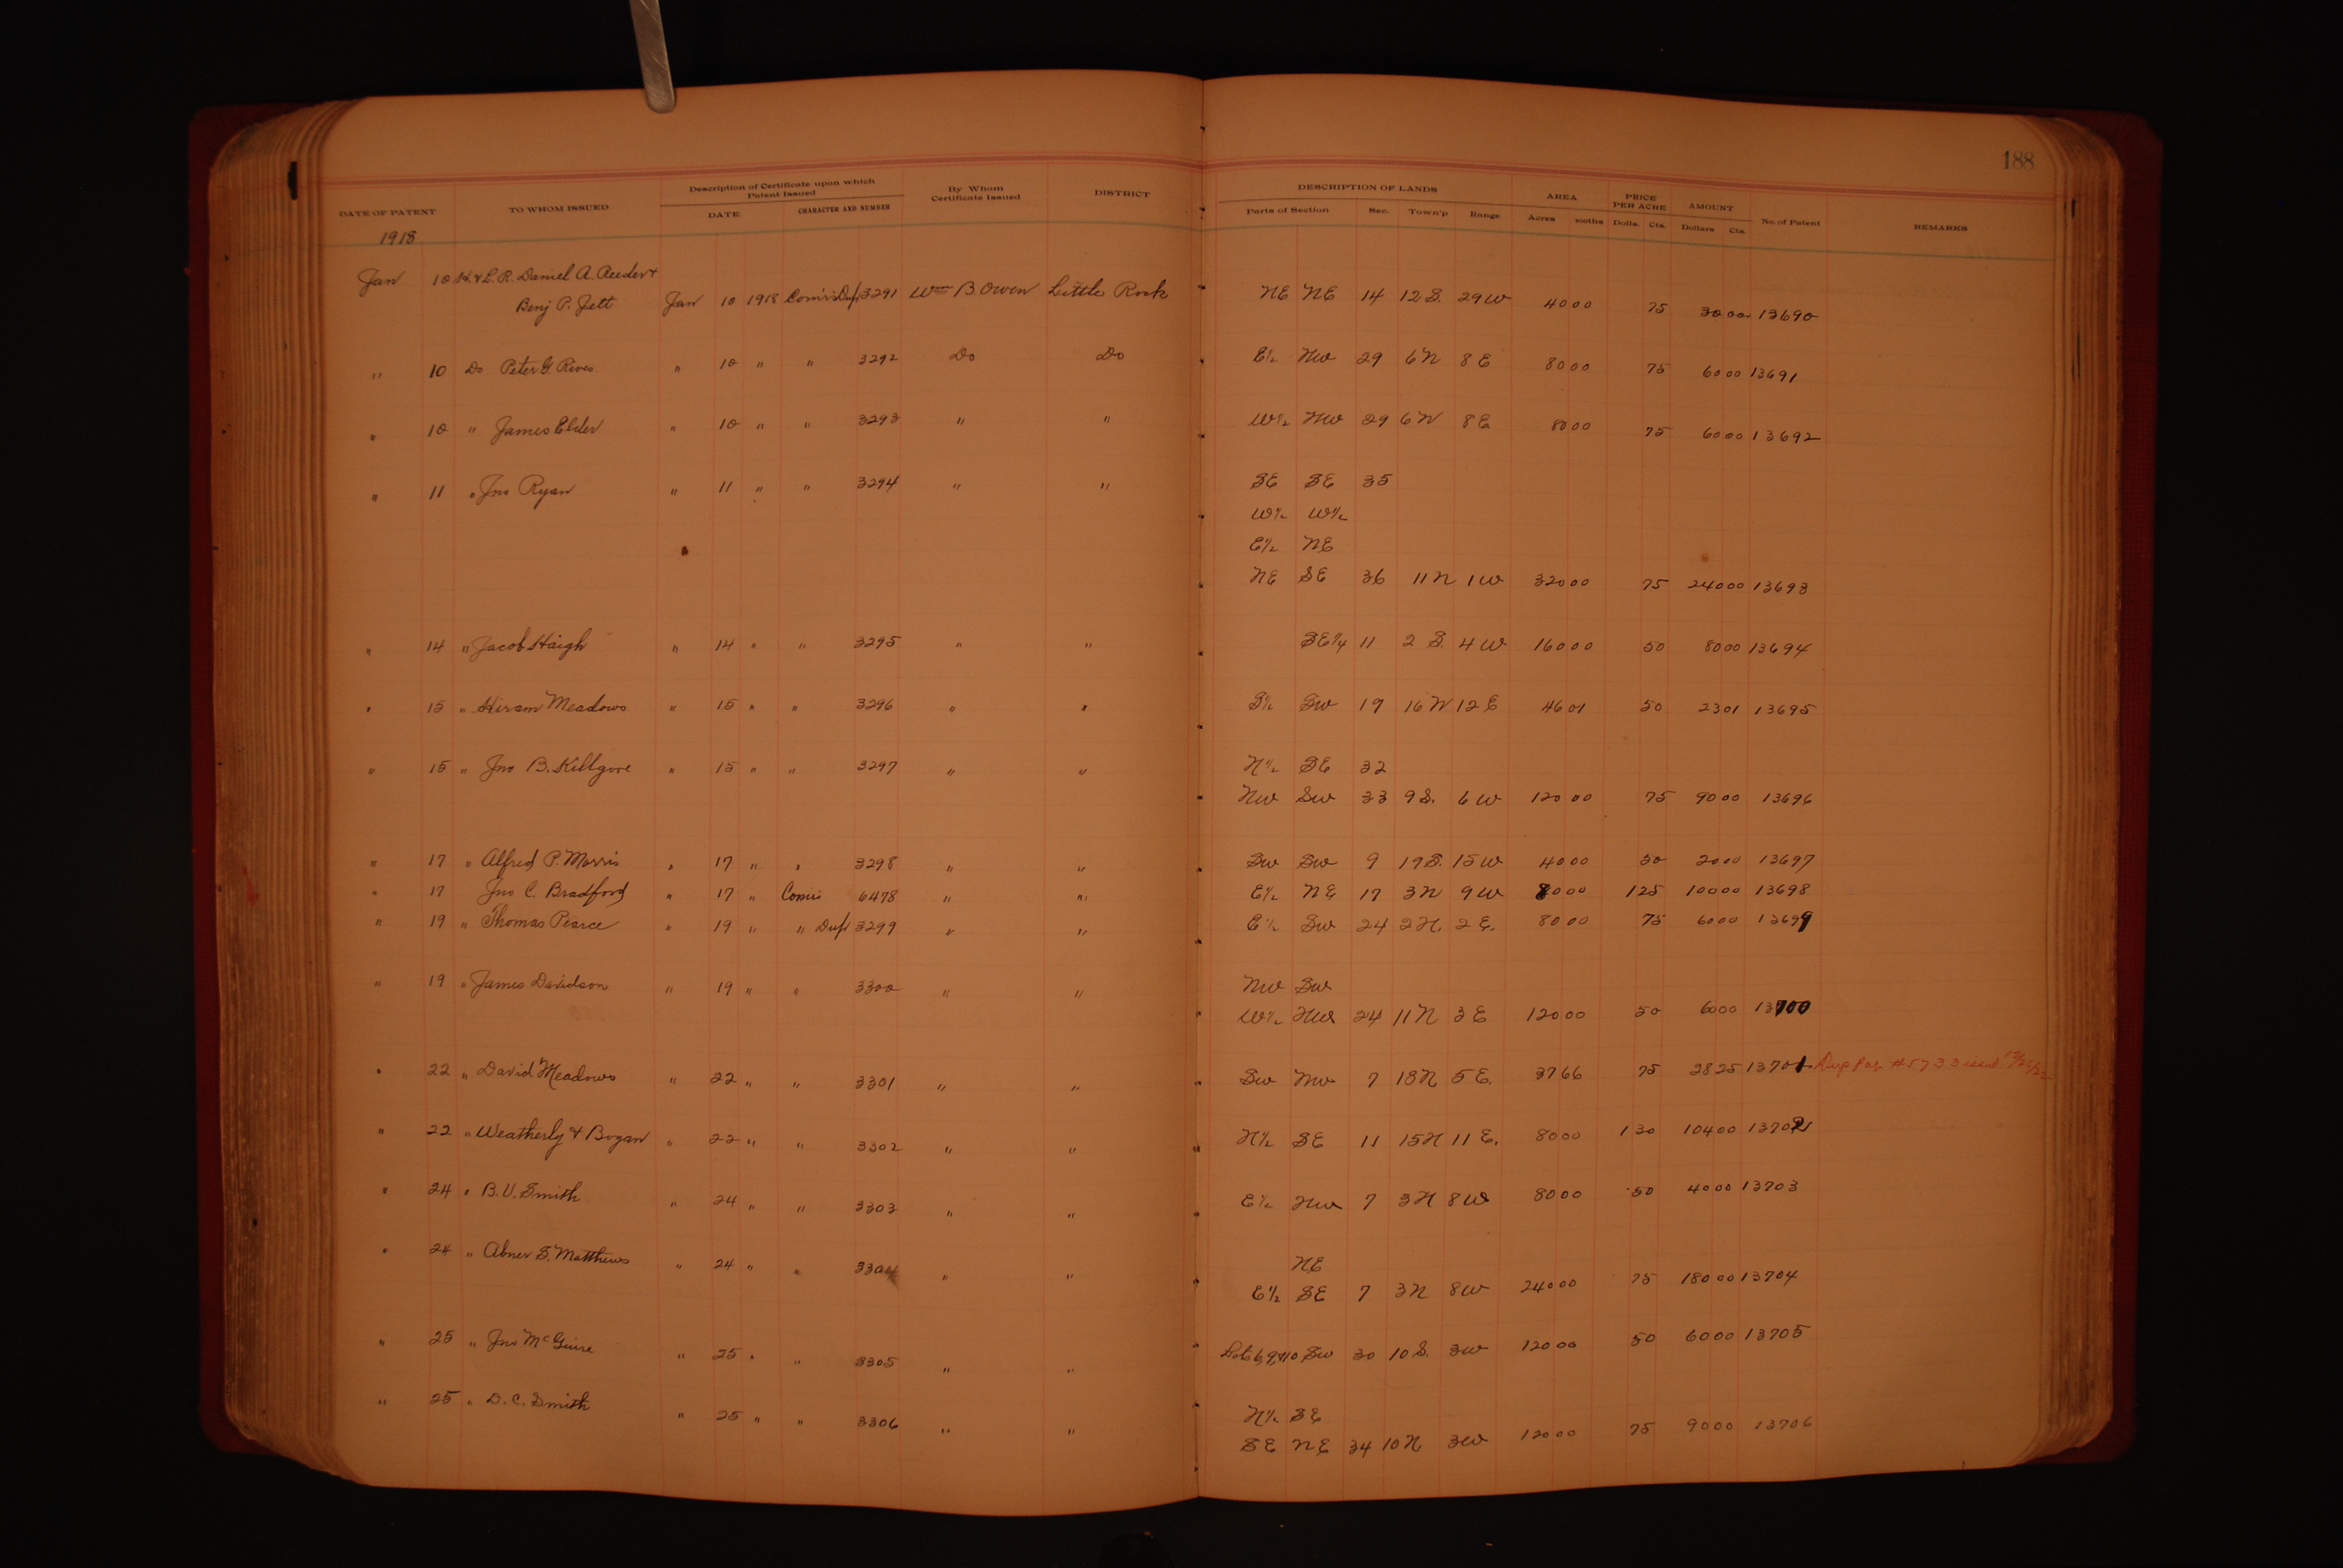 188
DATE OF PATENT TO WHOM ISSUED. Description of Certificate upon which Patent Issued DATE CHARACTER AND NUMBER By Whom Certificate Issued DISTRICT DESCRIPTION OF LANDS Parts of Section Sec. Town'p Range AREA Acres 100ths PRICE PER ACRE Dolls. Cts. AMOUNT Dollars Cts. No. of Patent REMARKS
1918
Jan 10 H. & L.R. Daniel A. Reeder &
Benj P. Jett Jan 10 1918 Comis Dup 3291 Wm B. Owen Little Rock NE NE 14 12 S. 29 W 40 00 75 30 00 13690
" 10 Do Peter G. Rives. " 10 " " 3292 Do Do E½ NW 29 6 N 8 E 80 00 75 60 00 13691
" 10 " James Elder " 10 " " 3293 " " W½ NW 29 6 N 8 E 80 00 75 60 00 13692
" 11 " Jno Ryan " 11 " " 3294 " " SE SE 35
W½ W½
E½ NE
NE SE 36 11 N 1 W 320 00 75 240 00 13693
" 14 " Jacob Haigh " 14 " " 3295 " " SE¼ 11 2 S. 4 W 160 00 50 80 00 13694
" 15 " Hiram Meadows " 15 " " 3296 " " S½ SW 19 16 N 12 E 46 01 50 23 01 13695
" 15 " Jno B. Killgore " 15 " " 3297 " " N½ SE 32
NW SW 33 9 S. 6 W 120 00 75 90 00 13696
" 17 " Alfred P. Morris " 17 " " 3298 " " SW SW 9 19 S. 15 W 40 00 50 20 00 13697
" 17 Jno C. Bradford " 17 " Comis 6478 " " E½ NE 17 3 N 9 W 80 00 1 25 100 00 13698
" 19 " Thomas Pearce " 19 " " Dup 3299 " " E½ SW 24 2 N. 2 E. 80 00 75 60 00 13699
" 19 " James Davidson " 19 " " 3300 " " NW SW
W½ NW 24 11 N 3 E 120 00 50 60 00 13700
" 22 " David Meadows " 22 " " 3301 " " SW NW 7 18 N 5 E. 37 66 75 28 25 13701 Dup Pat #5733
" 22 " Weatherly & Bogan " 22 " " 3302 " " N½ SE 11 15 N 11 E. 80 00 1 30 104 00 13702
" 24 " B. U. Smith " 24 " " 3303 " " E½ NW 7 3 N 8 W 80 00 50 40 00 13703
" 24 " Abner S. Matthews " 24 " " 3304 " " NE
E½ SE 7 3 N 8 W 240 00 75 180 00 13704
" 25 " Jno McGuire " 25 " " 3305 " " Lots 6, 9, & 10 SW 30 10 S. 3 W 120 00 50 60 00 13705
" 25 " D. C. Smith " 25 " " 3306 " " N½ SE
SE NE 34 10 N 3 W 120 00 75 90 00 13706